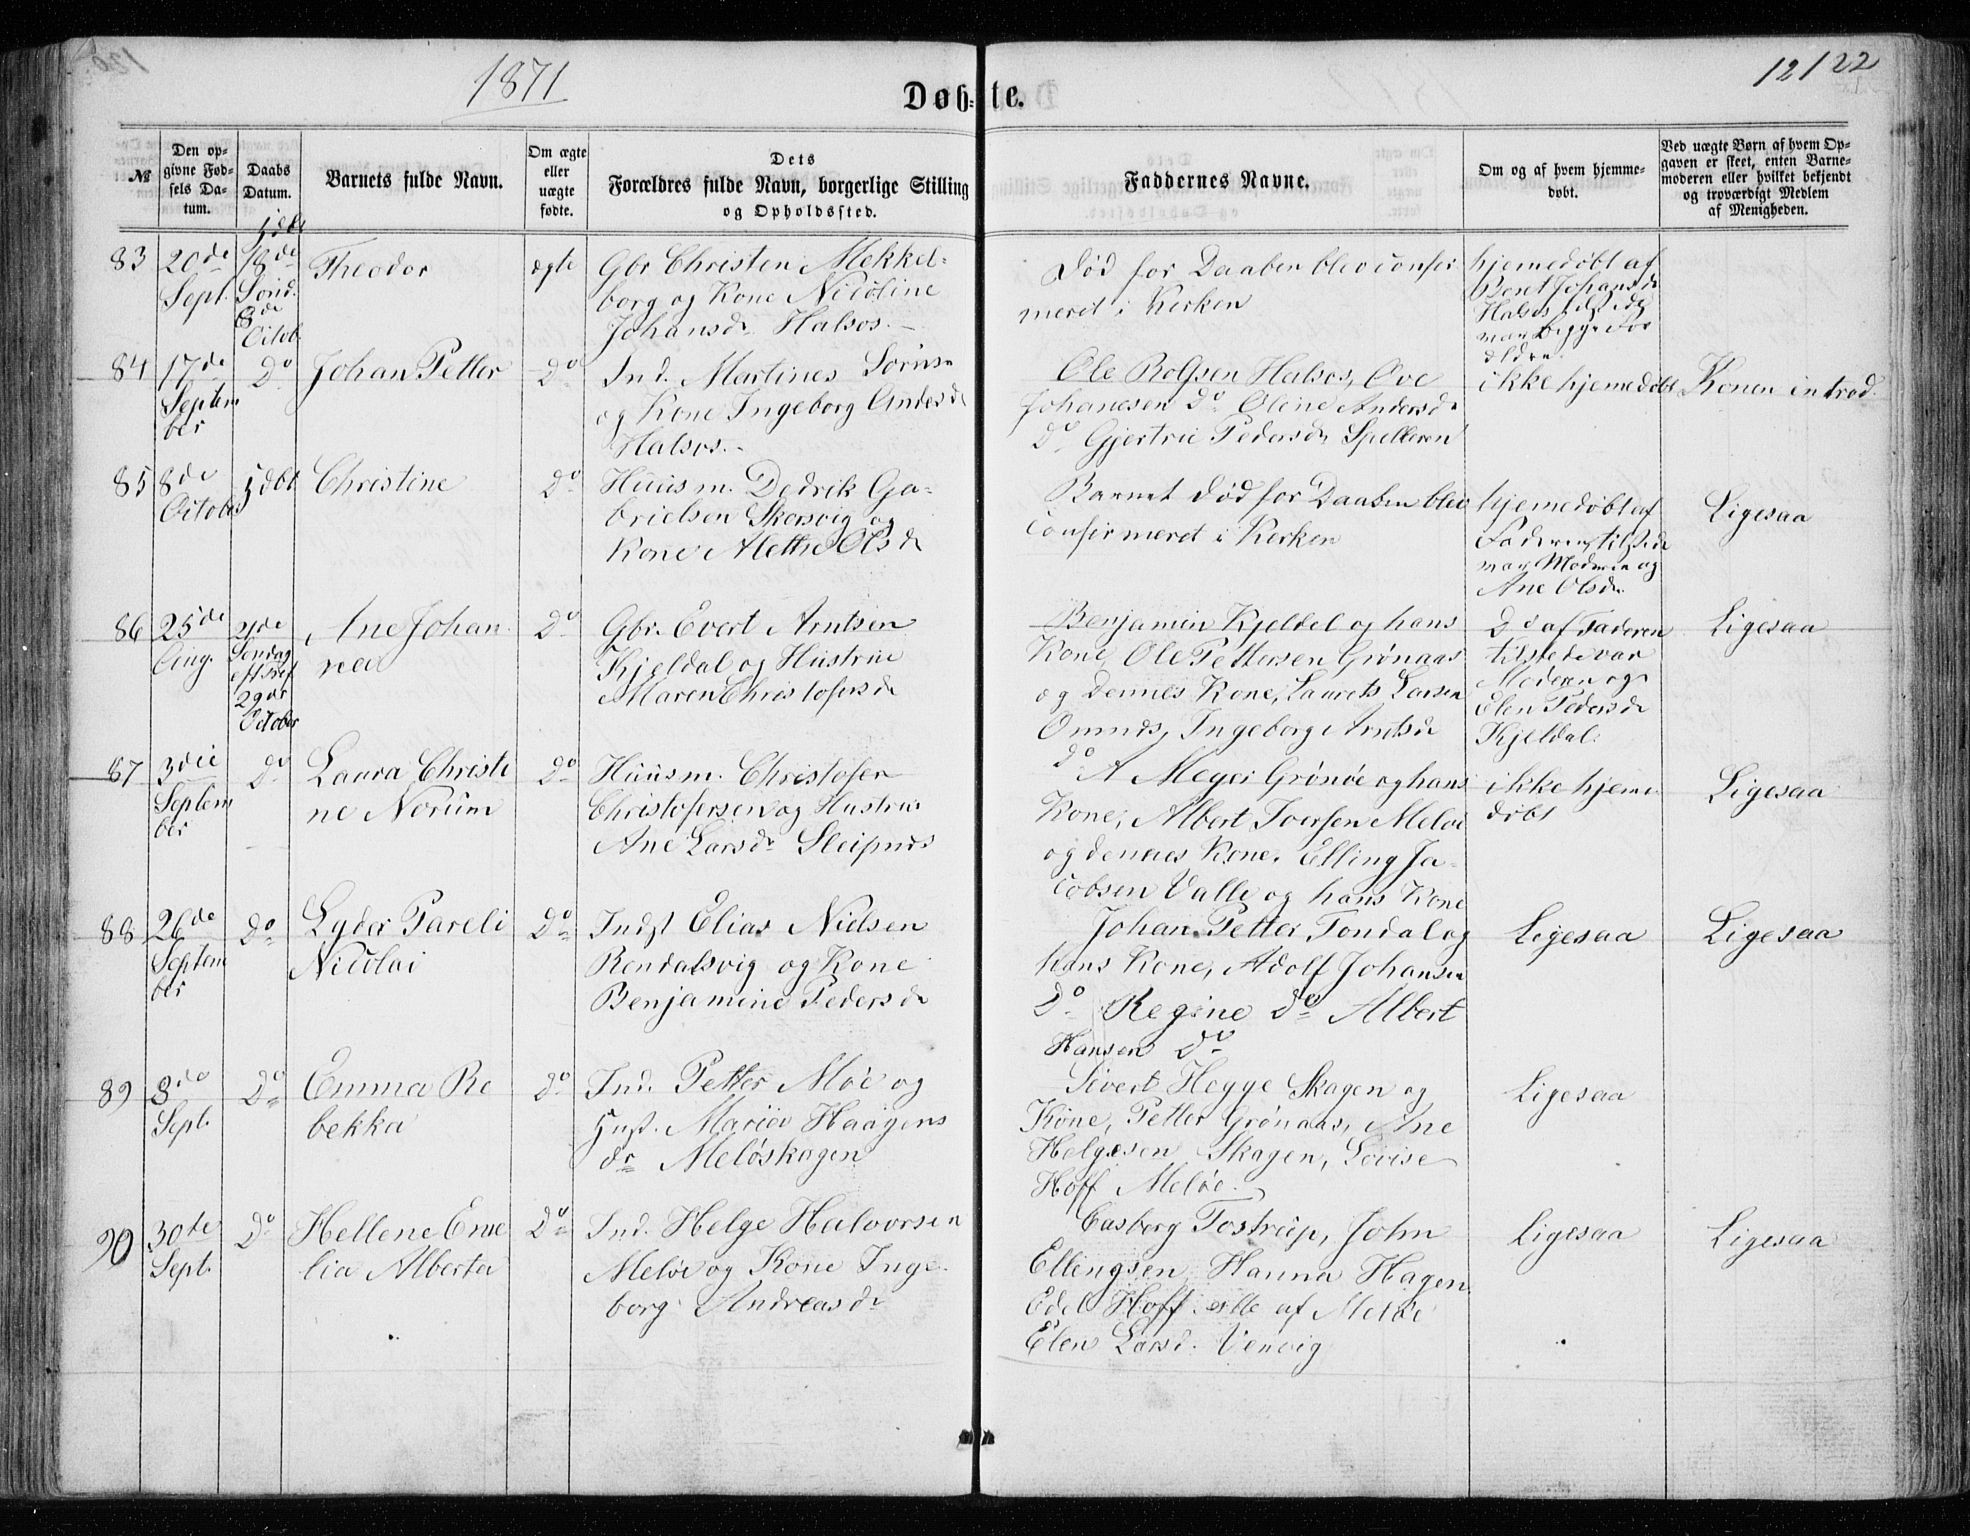 1871
Døb-te.
121 22
№
Den op-
givne Fød-
sels Da-
tum.
Daabs
Datum.
Barnets fulde Navn.
Om ægte
eller
uægte
fødte.
Dets
Forældres fulde Navn, borgerlige Stilling
og Opholdssted.
Faddernes Navne.
Om og af hvem hjemme-
døbt.
Ved uægte Børn af hvem Op-
gaven er skeet, enten Barne-
moderen eller hvilket bekjendt
og troværdigt Medlem
af Menigheden.
83
20de
Sept.
18de
Sønd.
8de
Octob
Theodor
ægte
Gbr Christen Mekkel-
borg og Kone Nicoline
Johansdr Halsos.
Død før Daaben blev confir
meret i Kirken
hjemedøbt af
Beret Johansdr
Halsos tilstede
var begge For
ældre.
84
17de
Septem
ber
Do
Johan Petter
Do
Ind. Martines Sørns
og Kone Ingeborg Andersdr
Halsos.
Ole Rolfsen Halsos, Ove
Johanesen Do Oline Andersdr
Do Gjertrue Pedersdr Spelleren
ikke hjemedøbt
Konen introd.
85
8de
October
Christine
Do
Huusm. Dedrik Ga-
brielsen Skorsvig og
Kone Alethe Olsdr
Barnet død før Daaben blev
confirmeret i Kirken
hjemedøbt af
Faderen, tilstede
var Moderen og
Ane Olsdr
Ligesaa
86
25de
Aug.
21de
Søndag
eft Tref
29de
October
Ane Johan
nea
Do
Gbr. Evert Arntsen
Kjeldal og Hustrue
Maren Christofersdr
Benjamin Kjeldal og hans
Kone, Ole Pettersen Grønaas
og dennes Kone, Laurets Larsen
Ommes, Ingeborg Arntsdr
Do
Do af Faderen
tilstede var
Moderen og
Elen Pedersdr
Kjeldal.
Ligesaa
87
3die
Septem
ber
Do
Laura Christi
ne Norum
Do
Huusm. Christofer
Christofersen og Hustrue
Ane Larsdr Sleipnes
A Meyer Grønøe og hans
Kone, Albert Iversen Meløe
og dennes Kone. Elling Ja-
cobsen Valle og hans Kone
ikke hjeme
døbt
Ligesaa
88
26de
Septem
ber
Do
Lyder Pareli
Nicolai
Do
Indst Elias Nielsen
Rendalsvig og Kone
Benjamine Pedersdr
Johan Petter Tondal og
hans Kone, Adolf Johansen
Do Regine Do Albert
Hansen Do
Ligesaa
Ligesaa
89
8de
Sept.
Do
Emma Re
bekka
Do
Ind. Petter Møe og
Hust. Maria Haagens
dr Meløskagen
Sivert Hegge Skagen og
Kone, Petter Grønaas, Ane
Helgesen Skagen, Lovise
Hoff Meløe.
Ligesaa
90
30te
Sept.
Do
Hellene Eme
lia Alberta
Do
Ind. Helge Halvorsen
Meløe og Kone Inge
borg Andreasdr
Casberg Tostrup, John
Ellingsen Hanna Hagen
Edel Hoff alle af Meløe
Elen Larsd. Venvig
Ligesaa
Ligesaa